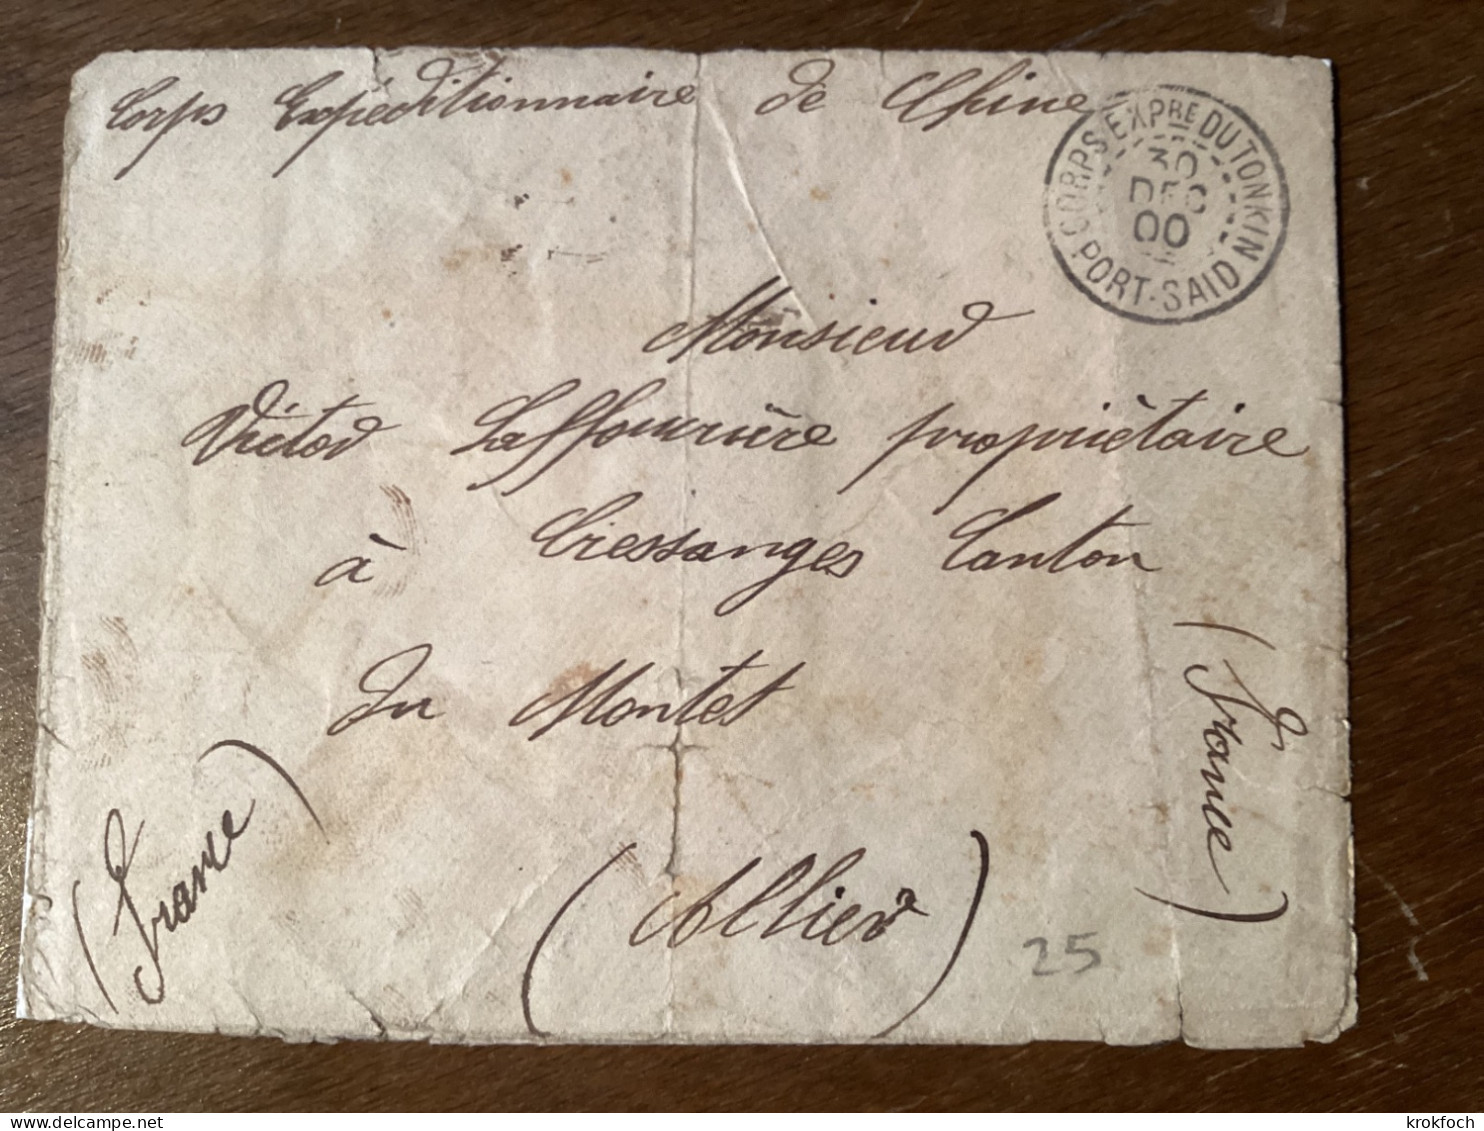 Corps Expéditionnaire de Chine
CORPS EXPRE DU TONKIN
30
DEC
00
PORT-SAID
Monsieur
Victor Laffourière propriètaire
à Cressanges Canton
Du Montet
(Allier)
(France)
(France)
25
krokfoch